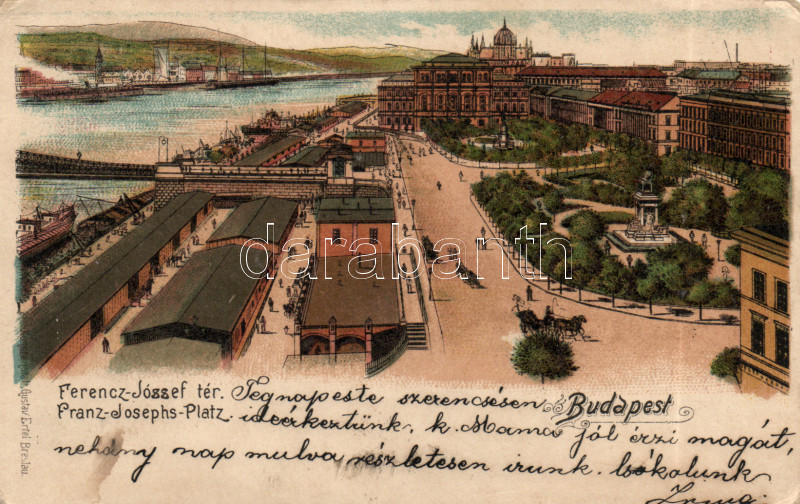 Ferencz-József tér.
Franz-Josephs-Platz.
Budapest
Tegnapeste szerencsésen
ideérkeztünk, k. Mama jól érzi magát,
nehány nap mulva részletesen irunk. Csókolunk
Irma
Gustav Ertel Breslau.
darabanth